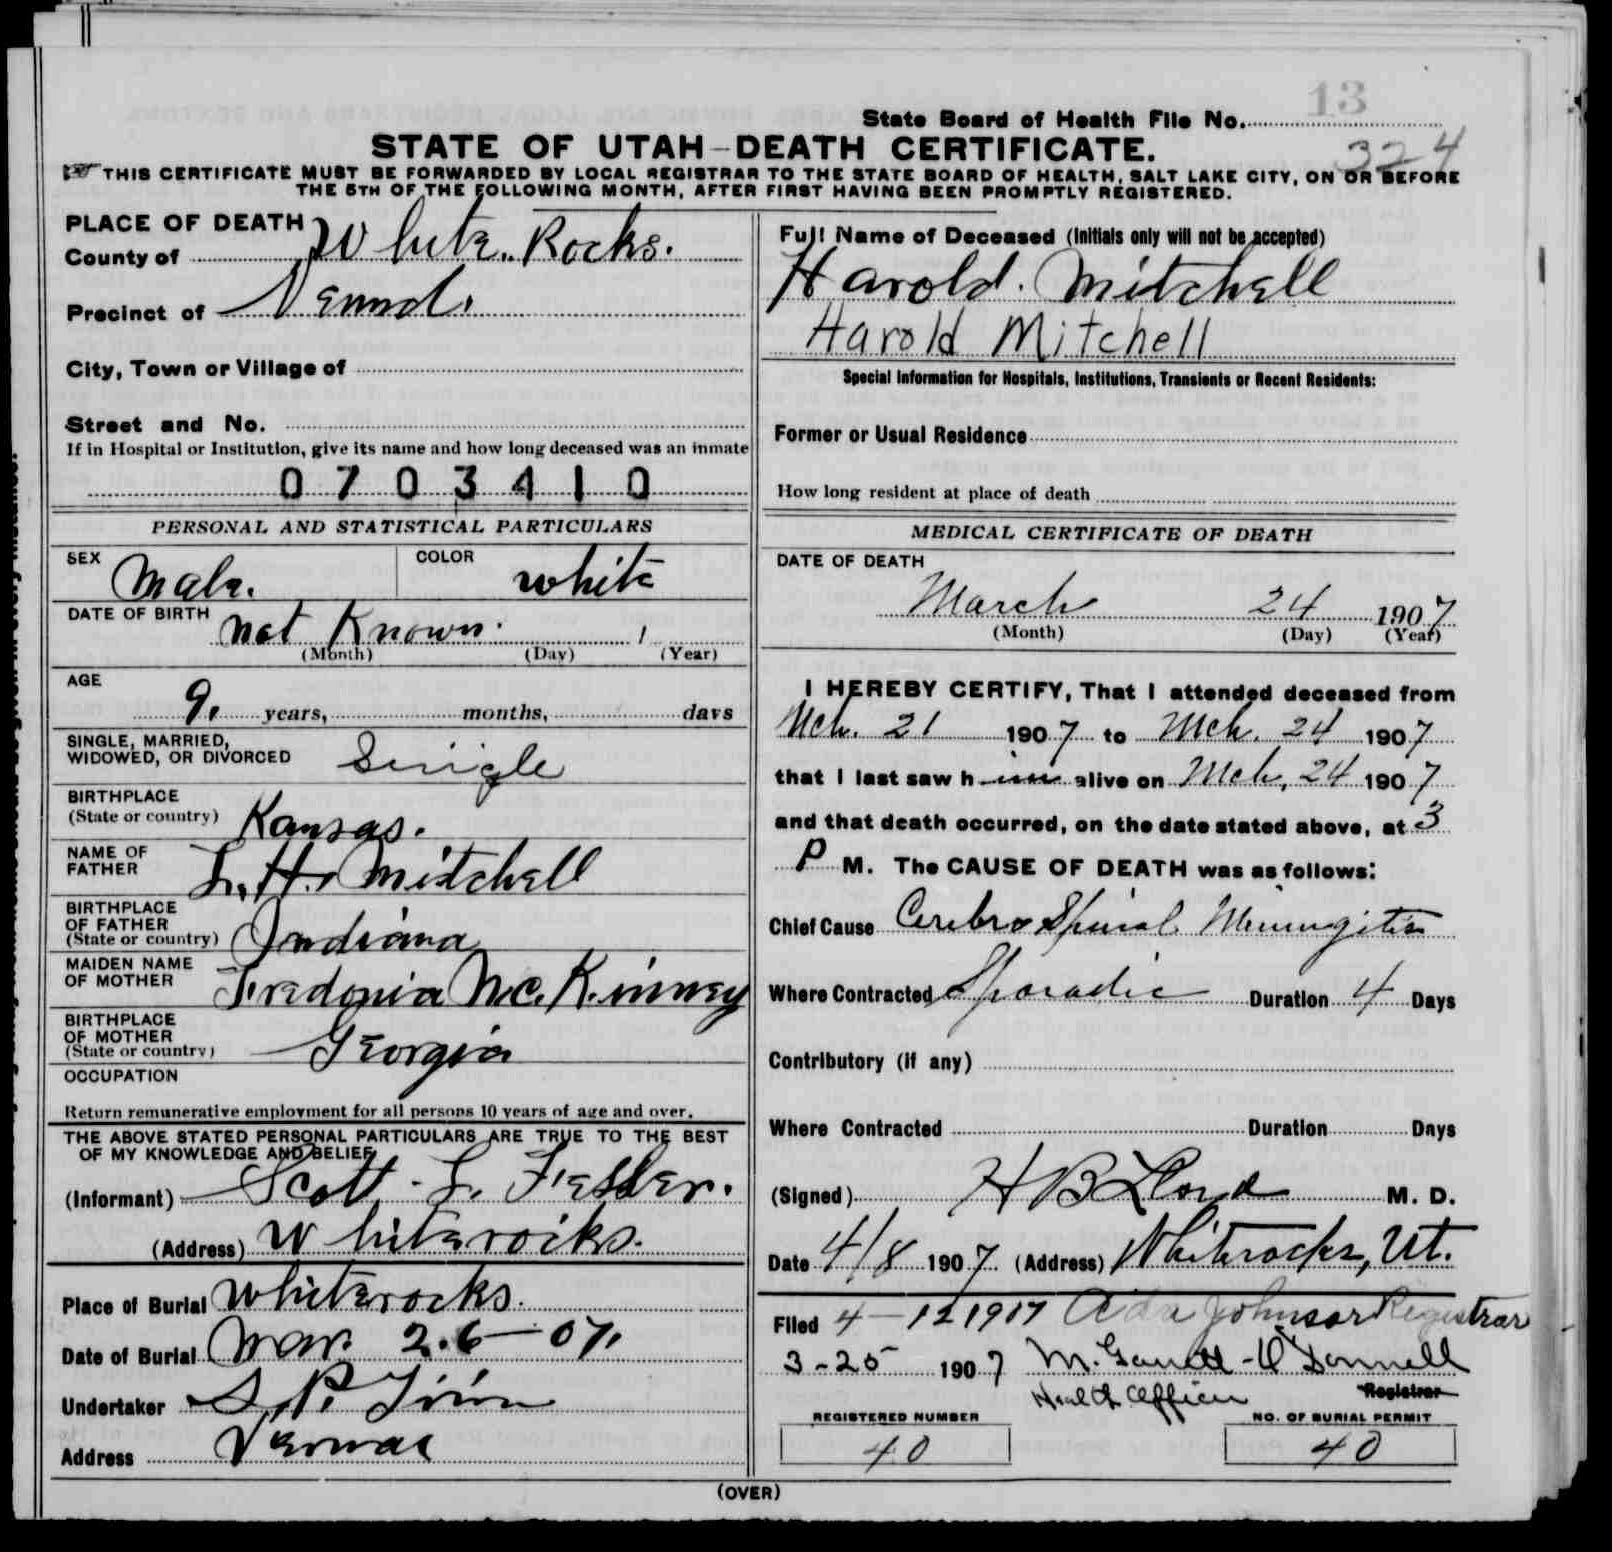 13
State Board of Health File No.
324
STATE OF UTAH-DEATH CERTIFICATE.
THIS CERTIFICATE MUST BE FORWARDED BY LOCAL REGISTRAR TO THE STATE BOARD OF HEALTH, SALT LAKE CITY, ON OR BEFORE
THE 5TH OF THE FOLLOWING MONTH, AFTER FIRST HAVING BEEN PROMPTLY REGISTERED.
PLACE OF DEATH
County of White Rocks.
Precinct of
City, Town or Village of
Street and No.
If in Hospital or Institution, give its name and how long deceased was an inmate
0703410
PERSONAL AND STATISTICAL PARTICULARS
SEX Male. COLOR White
DATE OF BIRTH Not Known.
(Month) (Day) (Year)
AGE
9. years, months, days
SINGLE, MARRIED,
WIDOWED, OR DIVORCED Single
BIRTHPLACE
(State or country) Kansas.
NAME OF
FATHER L. H. Mitchell
BIRTHPLACE
OF FATHER
(State or country) Indiana
MAIDEN NAME
OF MOTHER Fredonia McKinney
BIRTHPLACE
OF MOTHER
(State or country) Georgia
OCCUPATION
Return remunerative employment for all persons 10 years of age and over.
THE ABOVE STATED PERSONAL PARTICULARS ARE TRUE TO THE BEST
OF MY KNOWLEDGE AND BELIEF
(Informant) Scott L.
(Address) Whiterocks.
Place of Burial Whiterocks.
Date of Burial Mar. 26-07.
Undertaker S. P.
Address Vernal
Full Name of Deceased (Initials only will not be accepted)
Harold. Mitchell
Harold Mitchell
Special Information for Hospitals, Institutions, Transients or Recent Residents:
Former or Usual Residence
How long resident at place of death
MEDICAL CERTIFICATE OF DEATH
DATE OF DEATH
March 24 1907
(Month) (Day) (Year)
I HEREBY CERTIFY, That I attended deceased from
Mch. 21 1907 to Mch. 24 1907
that I last saw him alive on Mch, 24 1907
and that death occurred, on the date stated above, at 3
P M. The CAUSE OF DEATH was as follows:
Chief Cause Cerebro Spinal Meningitis
Where Contracted Sporadic Duration 4 Days
Contributory (if any)
Where Contracted Duration Days
(Signed) H B Lloyd M. D.
Date 4/8 1907. (Address) Whiterocks, Ut.
Filed 4-12 1907 Ada Johnson Registrar
3-25 1907 M.
Health Officer Registrar
REGISTERED NUMBER NO. OF BURIAL PERMIT
40 40
(OVER)